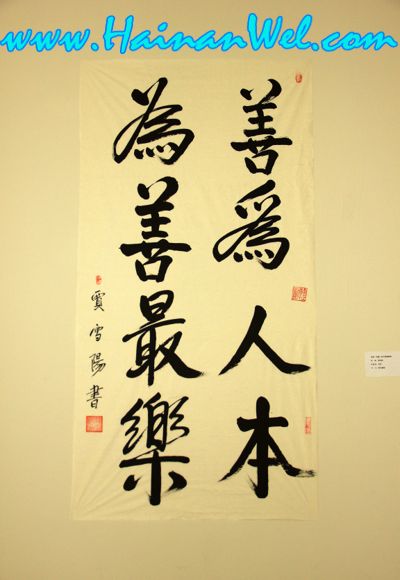 www.HainanWel.com
善爲人本
為善最樂
雪陽書